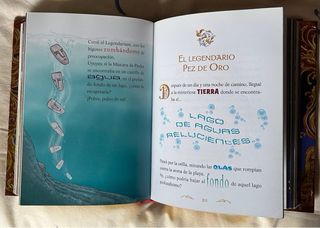 Cerré el Legendarium, con las
lágrimas zumbándome de
preocupación.
Uyuyuy, si la Máscara de Piedra
se encontraba en el castillo de
agua en el
fondo de un lago, ¿cómo la
recuperaría?
¡Pobre, pobre de mí!
EL LEGENDARIO
PEZ DE ORO
Después de un día y una noche de camino, llegué
a la misteriosa TIERRA donde se encontra-
ba el...
LAGO
DE AGUAS
RELUCIENTES
Paseé por la orilla, mirando las OLAS que rompían
contra la arena de la playa.
¿cómo podría bajar al fondo de aquel lago
profundísimo?